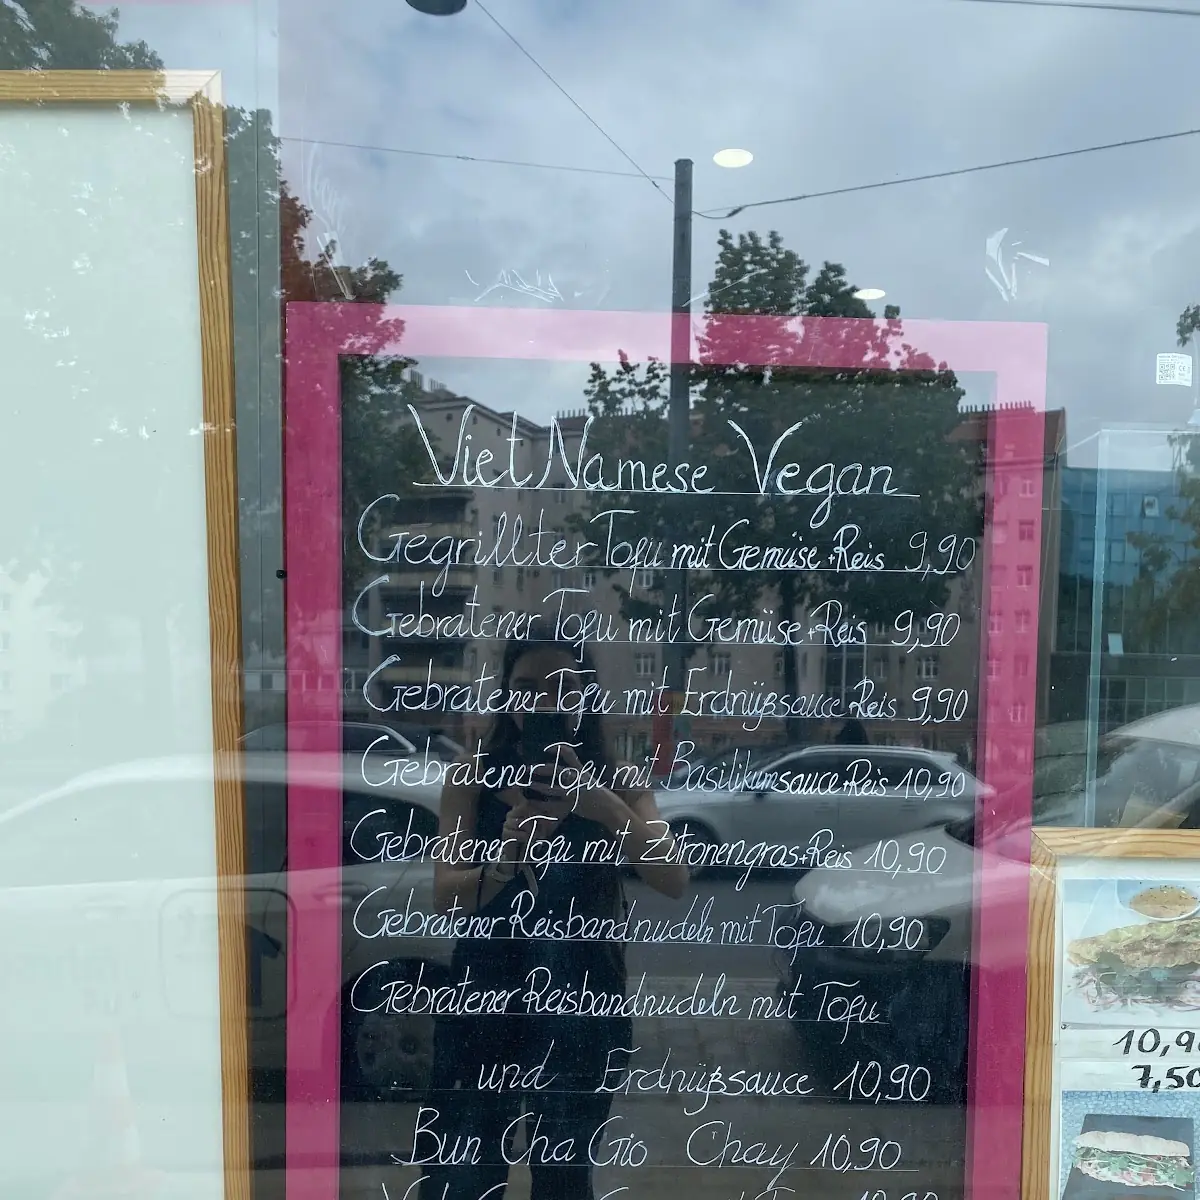 VietNamese Vegan
Gegrillter Tofu mit Gemüse + Reis 9,90
Gebratener Tofu mit Gemüse + Reis 9,90
Gebratener Tofu mit Erdnüßsauce Reis 9,90
Gebratener Tofu mit Basilikumsauce + Reis 10,90
Gebratener Tofu mit Zitronengras + Reis 10,90
Gebratener Reisbandnudeln mit Tofu 10,90
Gebratener Reisbandnudeln mit Tofu
und Erdnüßsauce 10,90
Bun Cha Gio Chay 10,90
10,90
7,50